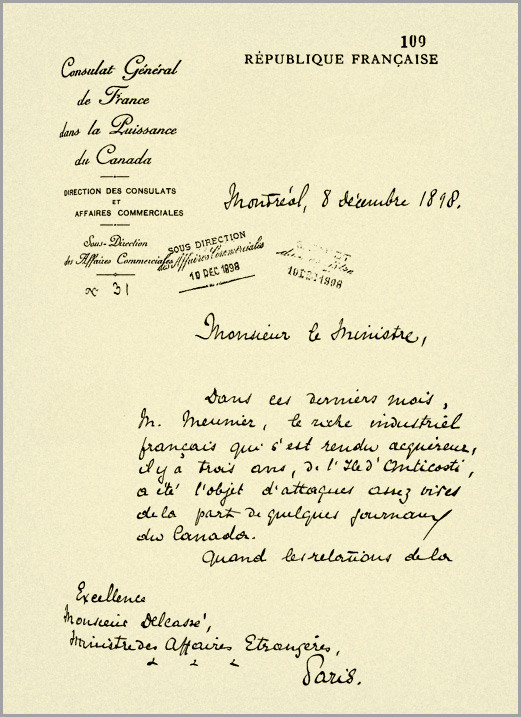 109
RÉPUBLIQUE FRANÇAISE
Consulat Général
de France
dans la Puissance
du Canada
DIRECTION DES CONSULATS
ET
AFFAIRES COMMERCIALES
Sous-Direction
des Affaires Commerciales
N° 31
Montréal, 8 décembre 1898.
SOUS DIRECTION
des Affaires Commerciales
19 DEC 1898
19 DEC 1898
Monsieur le Ministre,
Dans ces derniers mois,
M. Meunier, le riche industriel
français qui s'est rendu acquéreur,
il y a trois ans, de l'Ile d'Anticosti,
a été l'objet d'attaques assez vives
de la part de quelques journaux
du Canada.
Quand les relations de la
Excellence
Monsieur Delcassé,
Ministre des Affaires Etrangères,
Paris.